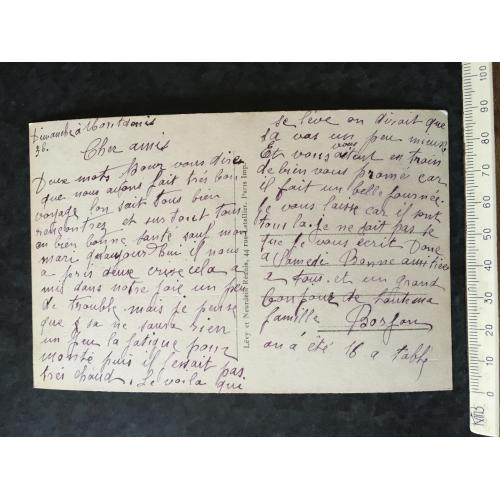 Dimanche à Montdenis
36.
Cher amis
Deux mots pour vous dire
que nous avons fait très bon
voyage lon sait tous bien
rencontrez et sur tout tous
en bien bonne santé sauf mon
mari quaujour'hui il nous
a pris deux crise cela a
mis dans notre joie un peu
de trouble mais je pense
que sa ne saura rien
un peu la fatigue pour
monté puis il fessait pas
très chaud. Le voila qui
Lévy et Neurdein Réunis, 44 rue Letellier, Paris Imp.
se lève on dirait que
sa vas un peu mieux
Et vous vous etent en train
de bien vous promé car
il fait un belle journée.
Je vous laisse car il sont
tous la je ne fait pas se
que je vous écrit Donc
a Samedi Bonne amitiées
a tous et un grand
bonjour de toute ma
famille Bosfon
on a été 18 a table